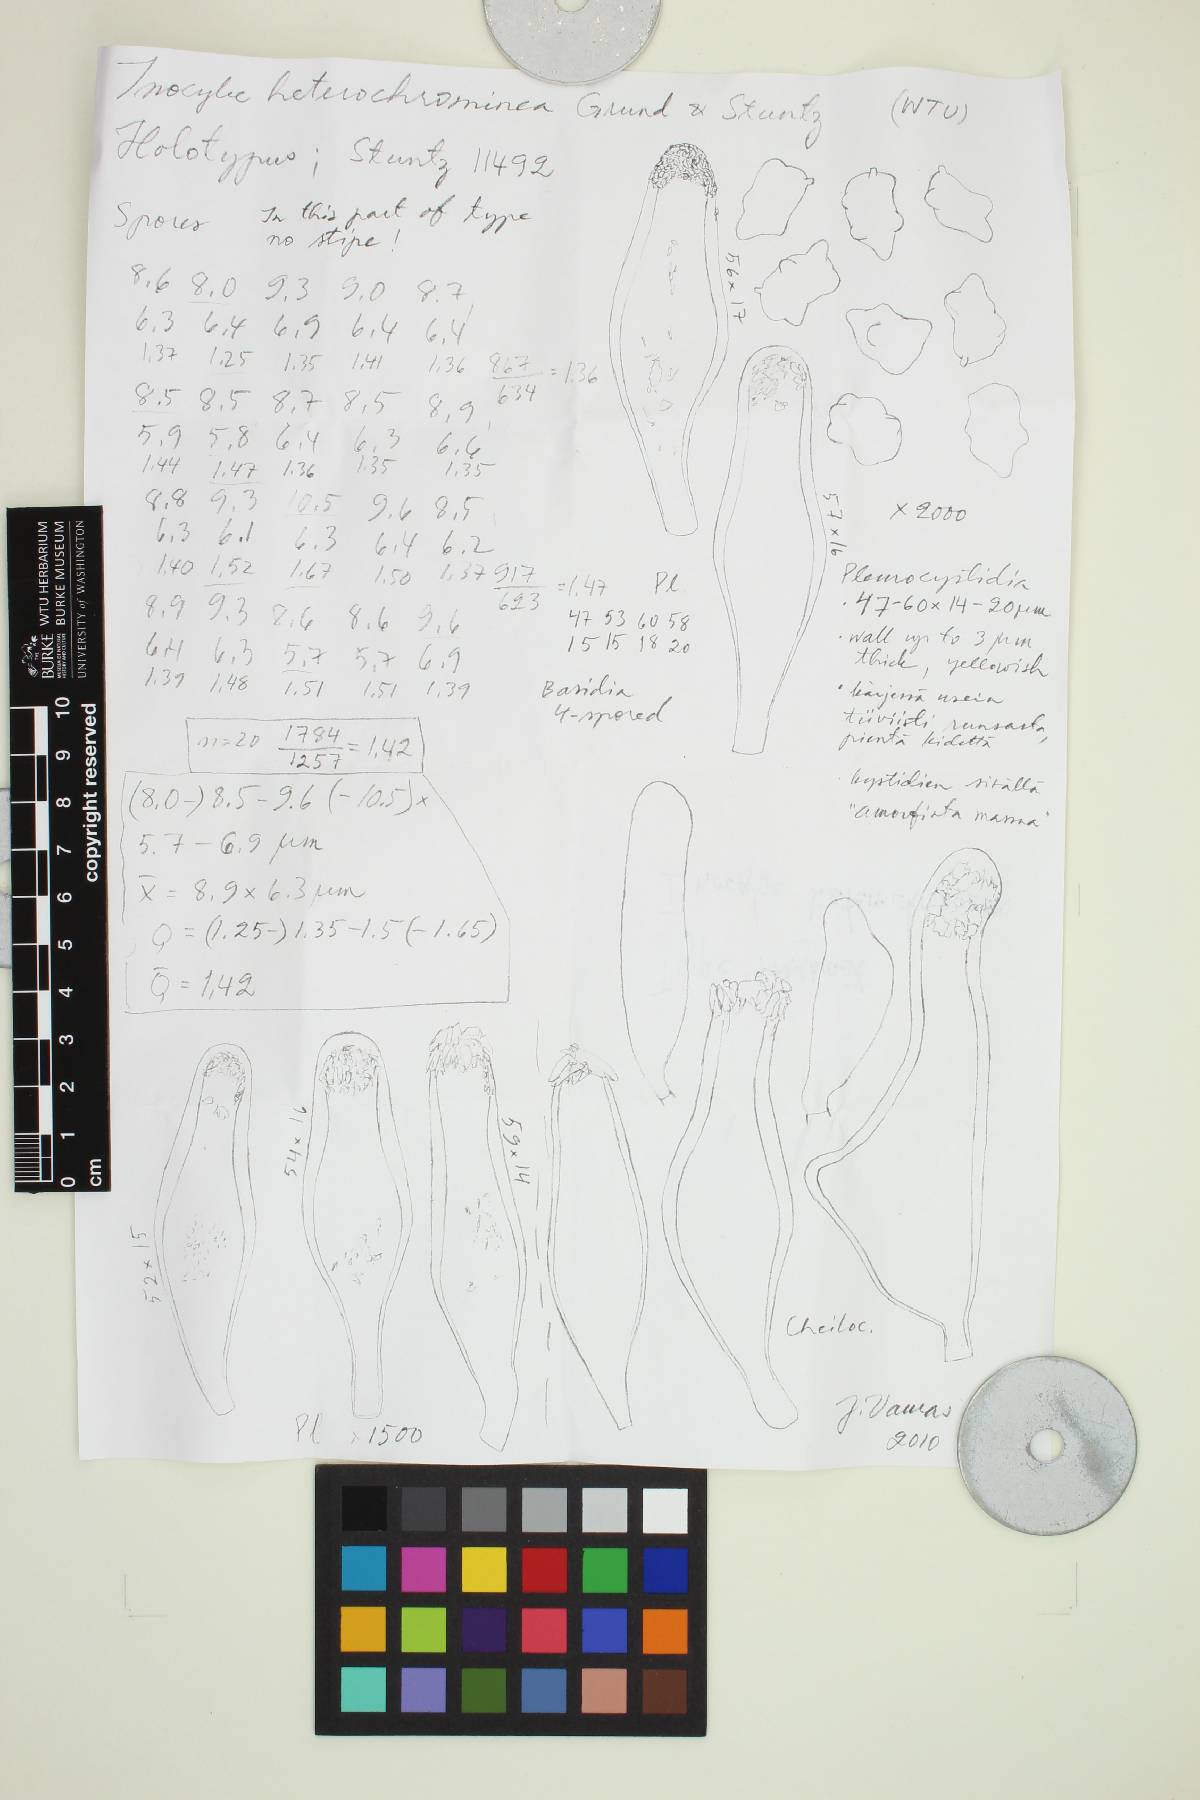 Inocybe heterochrominea Grund & Stuntz (WTU)
Holotypus; Stuntz 11492
Spores In this part of type
no stipe!
8.6 8.0 9.3 9.0 8.7
6.3 6.4 6.9 6.4 6.4
1.37 1.25 1.35 1.41 1.36 867/634 = 1.36
8.5 8.5 8.7 8.5 8.9
5.9 5.8 6.4 6.3 6.6
1.44 1.47 1.36 1.35 1.35
8.8 9.3 10.5 9.6 8.5
6.3 6.1 6.3 6.4 6.2
1.40 1.52 1.67 1.50 1.37 917/623 = 1.47
8.9 9.3 8.6 8.6 9.6
6.4 6.3 5.7 5.7 6.9
1.39 1.48 1.51 1.51 1.39
Pl
47 53 60 58
15 15 18 20
Basidia
4-spored
n=20 1784/1257 = 1.42
(8.0-) 8.5-9.6 (-10.5) x
5.7-6.9 µm
x̄ = 8.9 x 6.3 µm
Q = (1.25-) 1.35-1.5 (-1.65)
Q̄ = 1,42
56 x 17
57 x 16
x 2000
Pleurocystidia
· 47-60 x 14-20 µm
· wall up to 3 µm
thick, yellowish
· kärjessä usein
tiiviisti runsasta,
pientä kidettä
· kystidien sisällä
"amorfista massa"
52 x 15
54 x 16
59 x 14
Pl x 1500
Cheiloc.
J. Vauras
2010
WTU HERBARIUM
BURKE MUSEUM
UNIVERSITY of WASHINGTON
BURKE
copyright reserved
10
9
8
7
6
5
4
3
2
1
0
cm